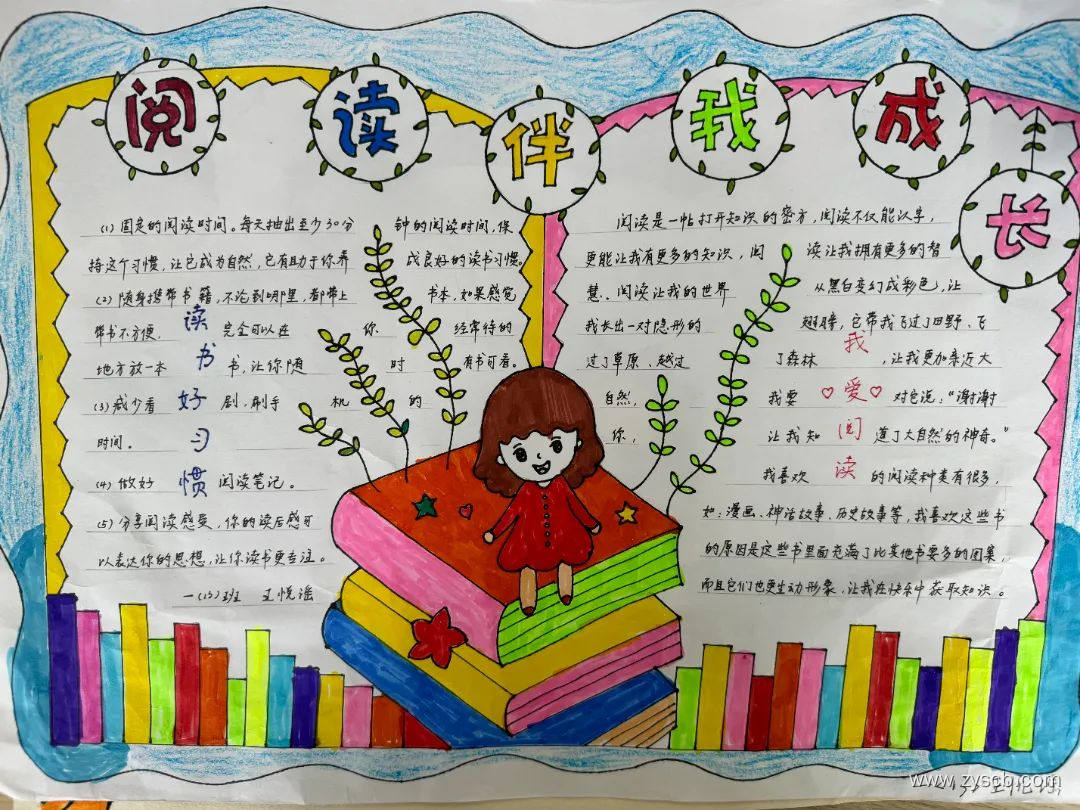 阅读伴我成长
(1)固定的阅读时间。每天抽出至少30分钟的阅读时间,保
持这个习惯,让它成为自然,它有助于你养成良好的读书习惯。
(2)随身携带书籍,不论到哪里,都带上书本,如果感觉
带书不方便,完全可以在你经常待的
地方放一本书,让你随时有书可看。
(3)减少看剧,刷手机的
时间。
(4)做好阅读笔记。
(5)分享阅读感受,你的读后感可
以表达你的思想,让你读书更专注。
一(15)班 王悦谣
读书好习惯
阅读是一帖打开知识的密方,阅读不仅能认字,
更能让我有更多的知识,阅读让我拥有更多的智
慧。阅读让我的世界从黑白变幻成彩色,让
我长出一对隐形的翅膀,它带我飞过了田野、飞
过了草原、越过了森林,让我更加亲近大
自然,我要对它说:“谢谢
你,让我知道了大自然的神奇。”
我喜欢的阅读种类有很多,
如:漫画、神话故事、历史故事等,我喜欢这些书
的原因是这些书里面充满了比其他书要多的图案,
而且它们也更生动形象,让我在快乐中获取知识。
我爱阅读
www.zyscb.com